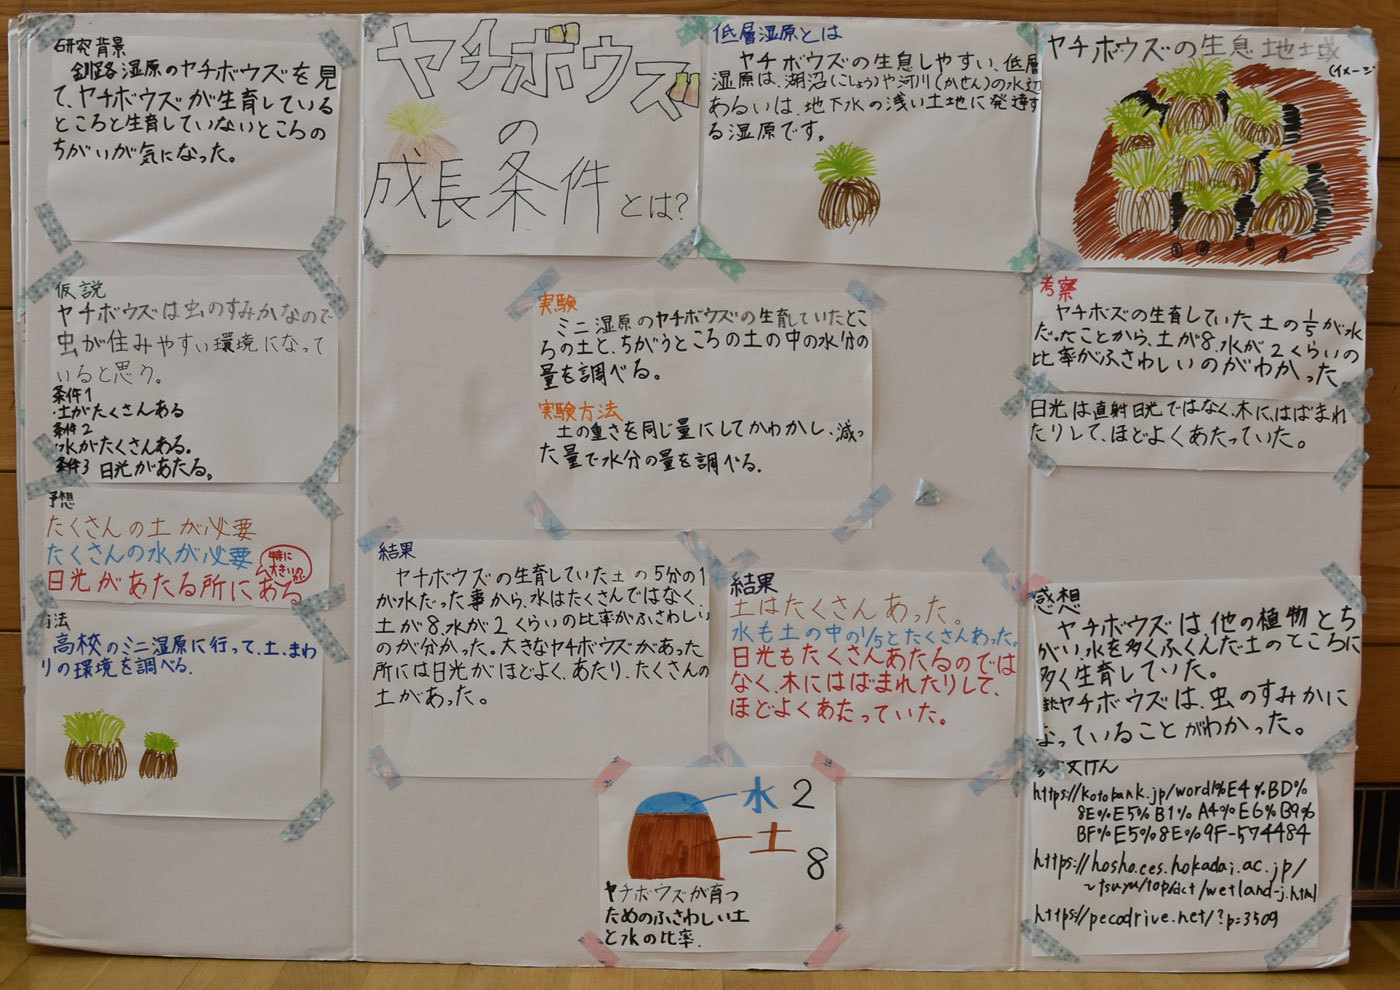 研究背景
釧路湿原のヤチボウズを見
て、ヤチボウズが生育している
ところと生育していないところの
ちがいが気になった。
仮説
ヤチボウズは虫のすみかなので
虫が住みやすい環境になって
いると思う。
条件1
・土がたくさんある
条件2
・水がたくさんある。
条件3 日光があたる。
予想
たくさんの土が必要
たくさんの水が必要
日光があたる所にある
特に
大きいの
方法
高校のミニ湿原に行って、土、まわ
りの環境を調べる.
ヤチボウズ
の
成長条件とは?
低層湿原とは
ヤチボウズの生息しやすい、低層
湿原は、湖沼(こしょう)や河川(かせん)の水辺
あるいは、地下水の浅い土地に発達す
る湿原です。
実験
ミニ湿原のヤチボウズの生育していたとこ
ろの土と、ちがうところの土の中の水分の
量を調べる。
実験方法
土の重さを同じ量にしてかわかし、減っ
た量で水分の量を調べる.
結果
ヤチボウズの生育していた土の5分の1
が水だった事から、水はたくさんではなく、
土が8、水が2くらいの比率がふさわしい
のが分かった。大きなヤチボウズがあった
所には日光がほどよく、あたり、たくさんの
土があった。
結果
土はたくさんあった。
水も土の中の1/5とたくさんあった。
日光もたくさんあたるのでは
なく、木にはばまれたりして、
ほどよくあたっていた。
水 2
土
8
ヤチボウズが育つ
ためのふさわしい土
と水の比率.
ヤチボウズの生息地域
(イメージ
考察
ヤチボズの生育していた土の1/5が水
だったことから、土が8、水が2くらいの
比率がふさわしいのがわかった。
日光は直射日光ではなく、木にはばまれ
たりして、ほどよくあたっていた。
感想
ヤチボウズは他の植物とち
がい、水を多くふくんだ土のところに
多く生育していた。
またヤチボウズは、虫のすみかに
なっていることがわかった。
参考文けん
https://kotobank.jp/word/%E4%BD%
8E%E5%B1%A4%E6%B9%
BF%E5%8E%9F-574484
https://hosho.ees.hokadai.ac.jp/
~tsuyu/top/dct/wetland-j.html
https://pecodrive.net/?p=3509